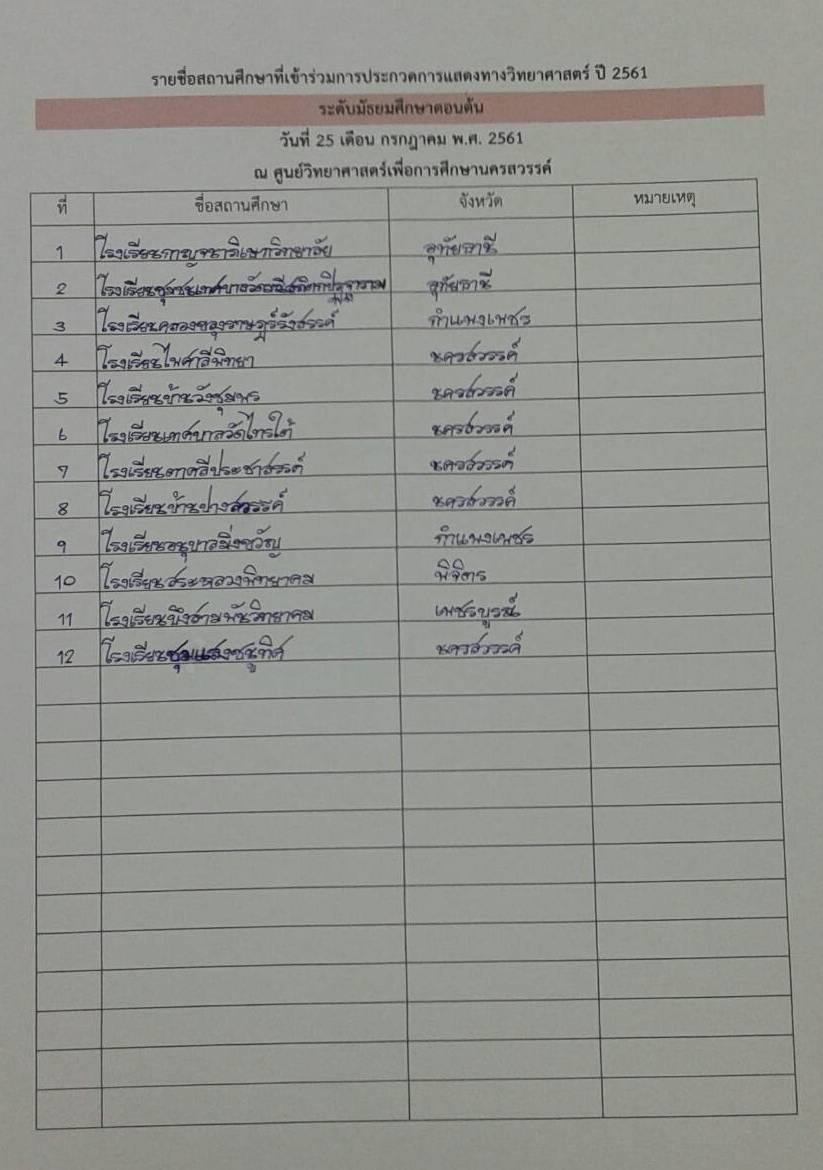 รายชื่อสถานศึกษาที่เข้าร่วมการประกวดการแสดงทางวิทยาศาสตร์ ปี 2561
ระดับมัธยมศึกษาตอนต้น
วันที่ 25 เดือน กรกฎาคม พ.ศ. 2561
ณ ศูนย์วิทยาศาสตร์เพื่อการศึกษานครสวรรค์
ที่ ชื่อสถานศึกษา จังหวัด หมายเหตุ
1 โรงเรียนกาญจนาภิเษกวิทยาลัย อุทัยธานี
2 อุทัยธานี
3 โรงเรียนคลองขลุงราษฎร์รังสรรค์ กำแพงเพชร
4 โรงเรียนไพศาลีพิทยา นครสวรรค์
5 โรงเรียนบ้านวังชุมพร นครสวรรค์
6 โรงเรียนเทศบาลวัดไทรใต้ นครสวรรค์
7 โรงเรียนตาคลีประชาสรรค์ นครสวรรค์
8 โรงเรียนบ้านปางสวรรค์ นครสวรรค์
9 โรงเรียนอนุบาลมิ่งขวัญ กำแพงเพชร
10 โรงเรียนสระหลวงพิทยาคม พิจิตร
11 โรงเรียนบึงสามพันวิทยาคม เพชรบูรณ์
12 โรงเรียนชุมแสงชนูทิศ นครสวรรค์